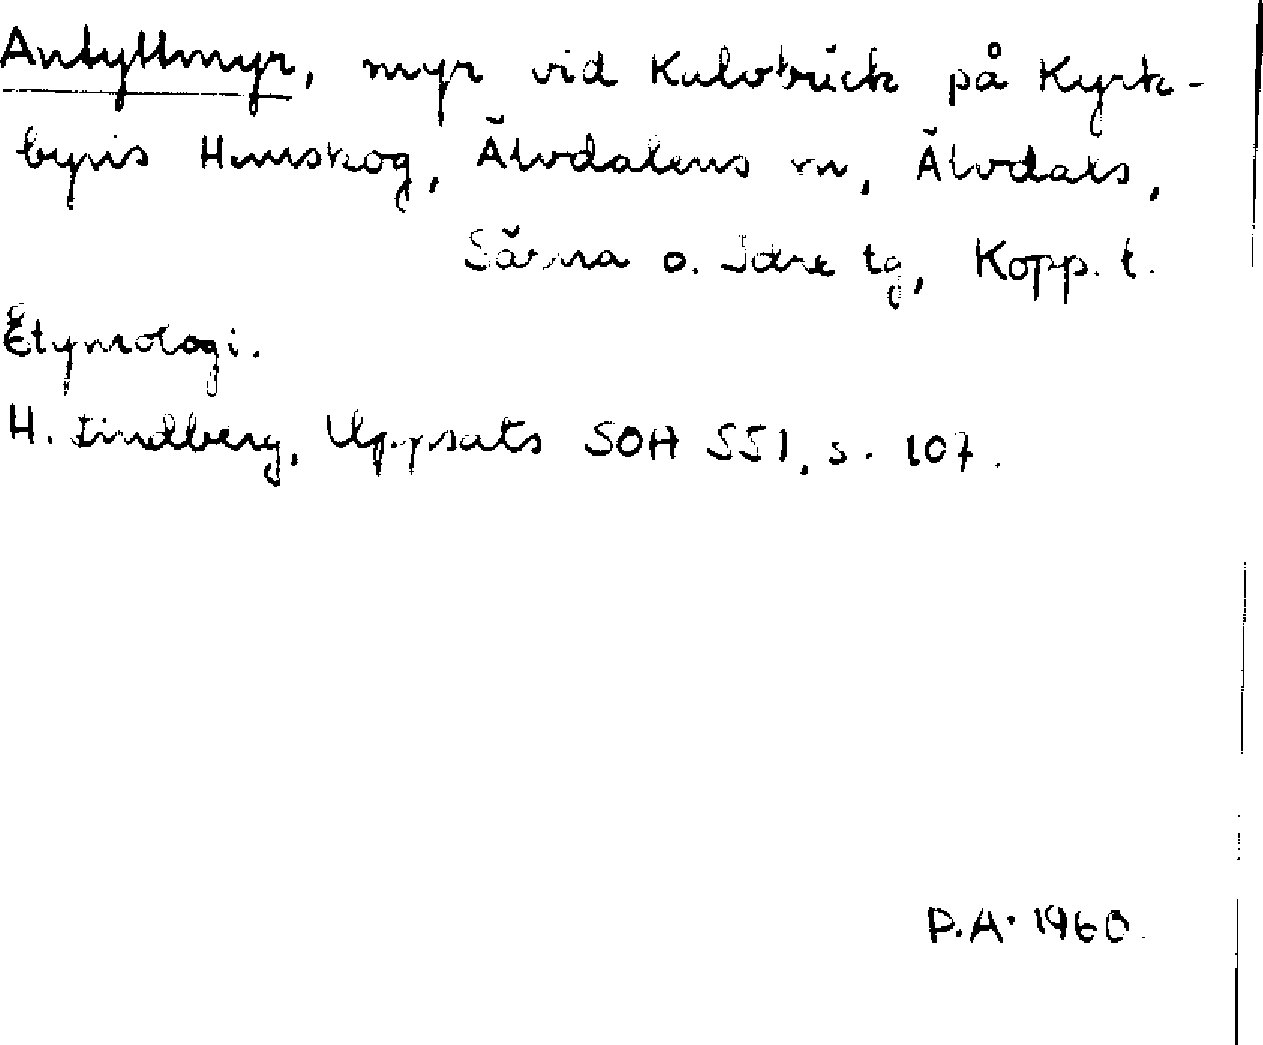 Antyttmyr, myr vid Kulvbrick på Kyrk-
byns Hemskog, Älvdalens sn, Älvdals,
Särna o. Idre tg, Kopp. l.
Etymologi.
H. Lindberg, Uppsats SOH 551, s. 107.
P.A. 1960.